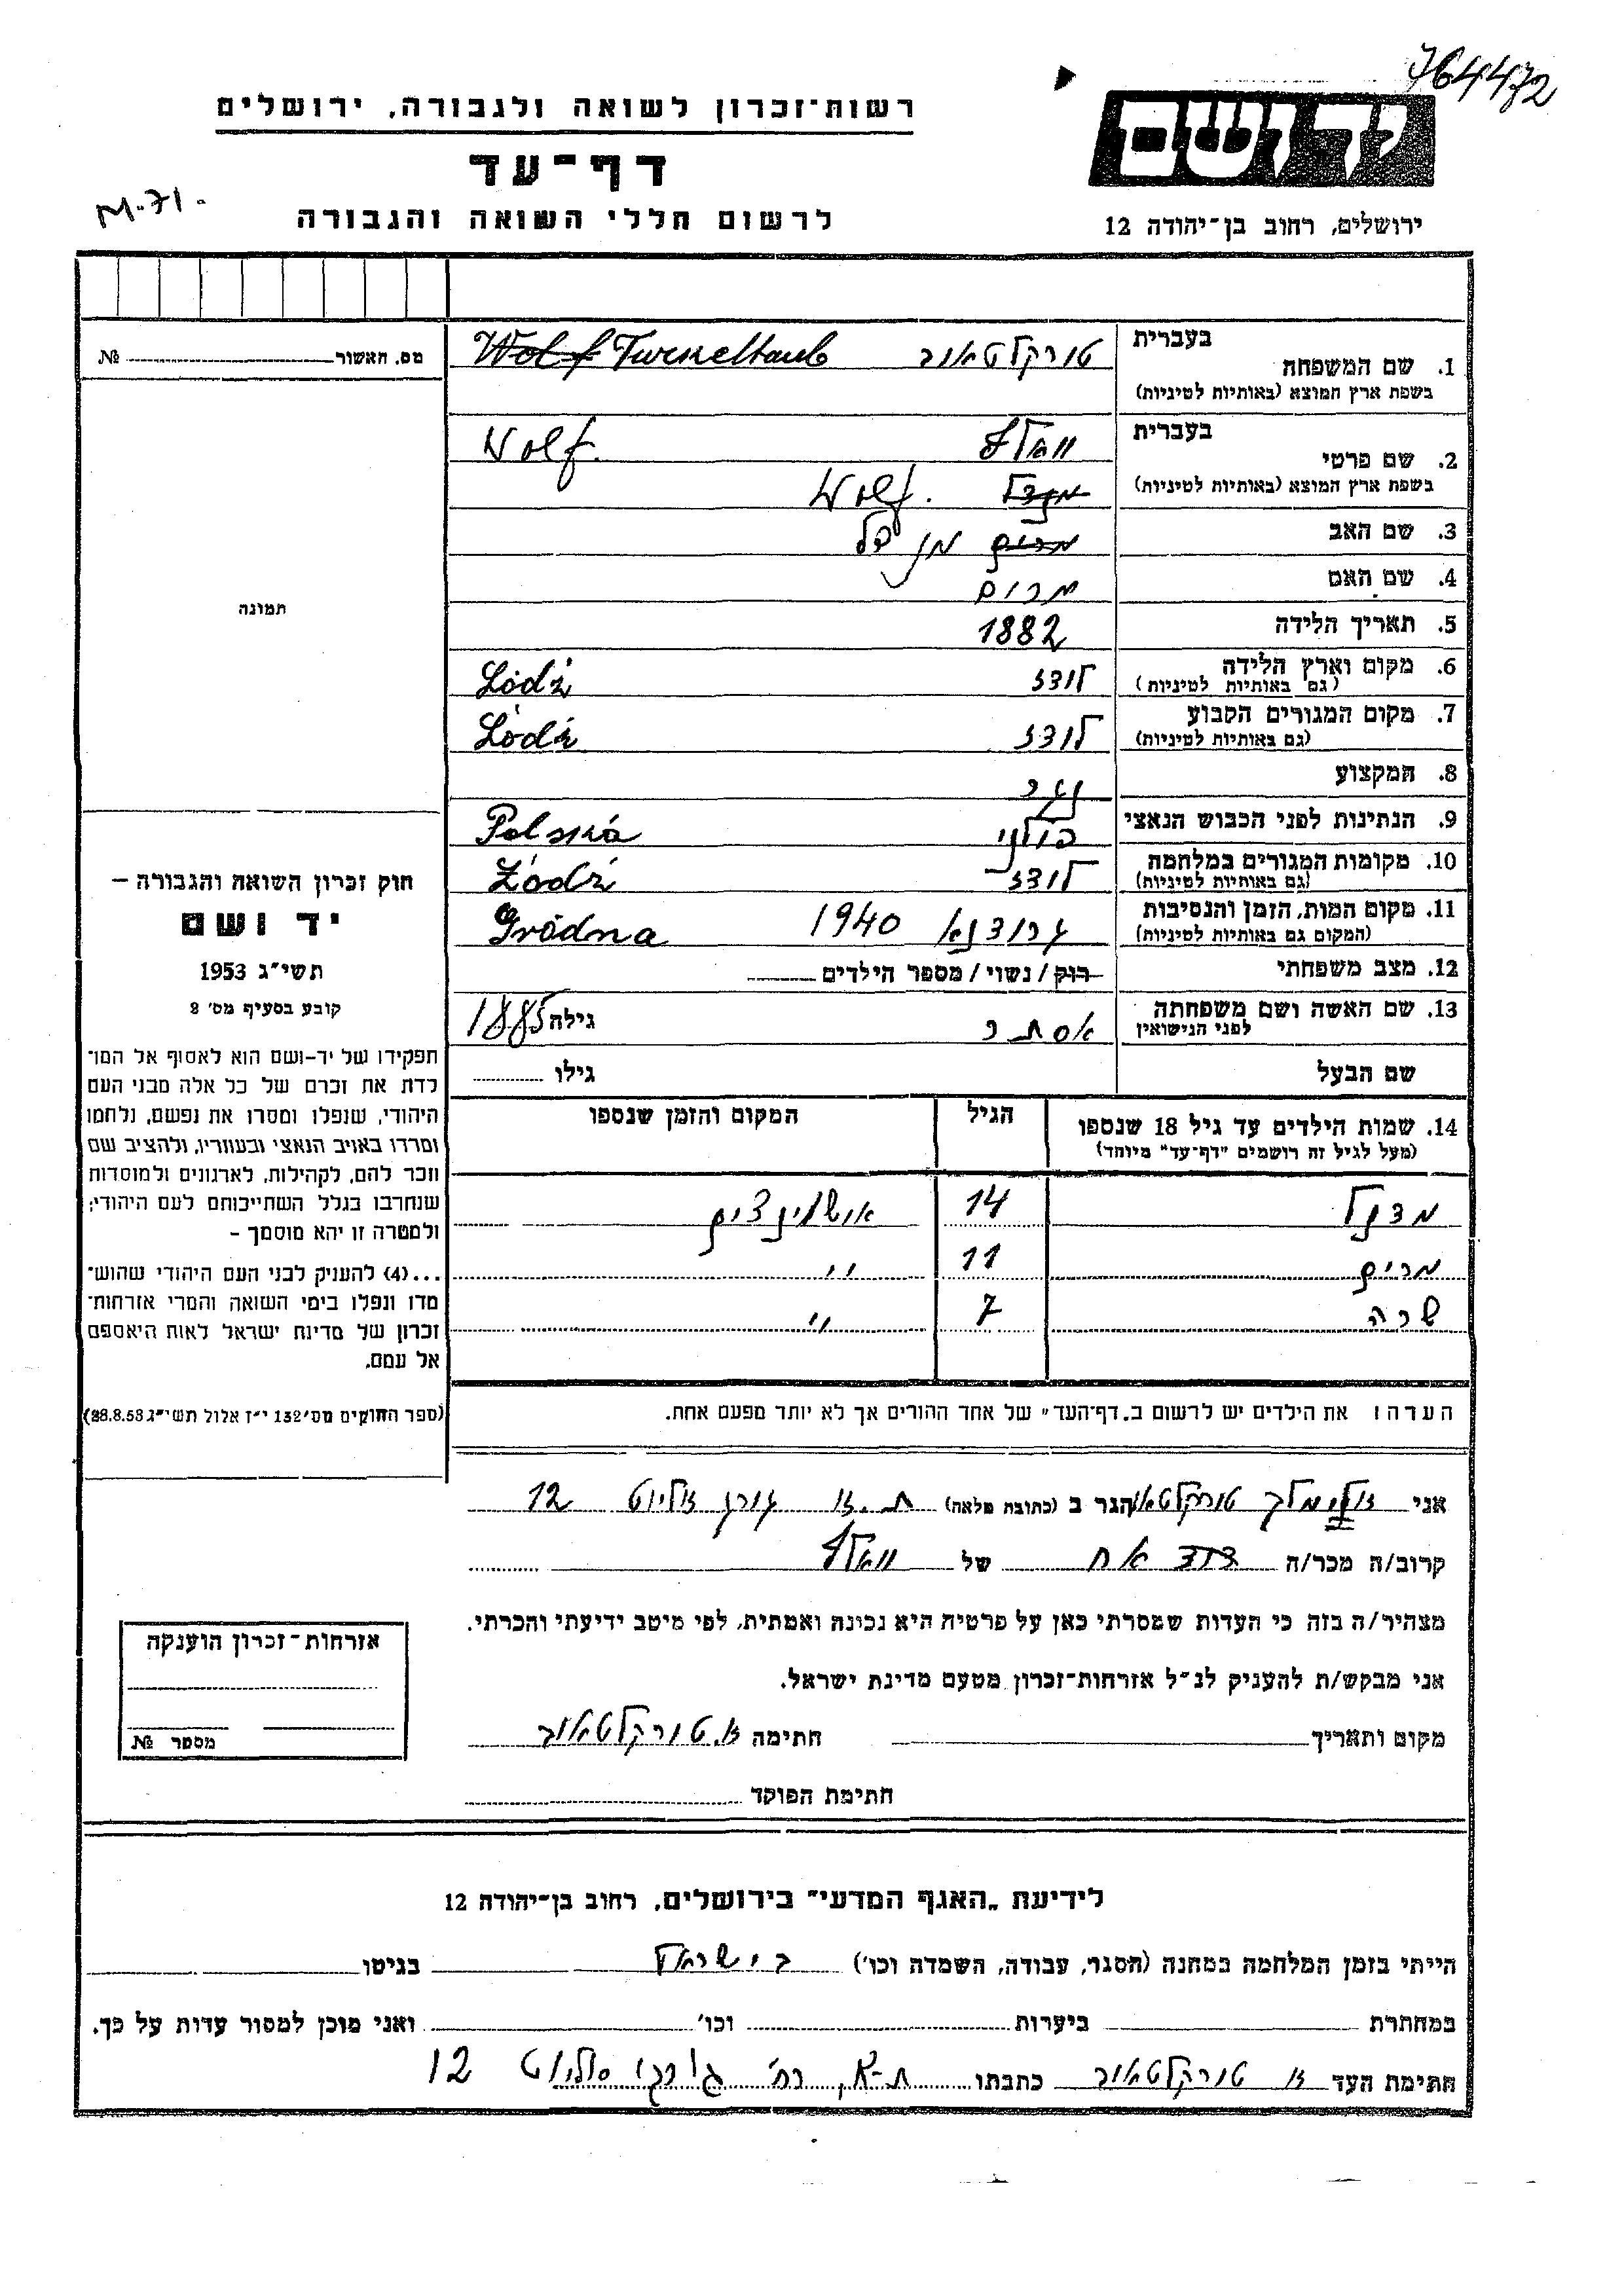 764472
רשות-זכרון לשואה ולגבורה, ירושלים
יד ושם
דף-עד
M-71.
לרשום חללי השואה והגבורה
ירושלים, רחוב בן-יהודה 12
מס. האשור № 
בעברית
1. שם המשפחה טורקלטאוב Wolf Turkeltaub
בשפת ארץ המוצא (באותיות לטיניות)
בעברית
2. שם פרטי וואלף Wolf.
בשפת ארץ המוצא (באותיות לטיניות) Wolf.
3. שם האב מרים
4. שם האם מרים
5. תאריך הלידה 1882
6. מקום וארץ הלידה לודז Łódź
(גם באותיות לטיניות)
7. מקום המגורים הקבוע לודז Łódź
(גם באותיות לטיניות)
8. המקצוע
9. הנתינות לפני הכבוש הנאצי פולני Polska
10. מקומות המגורים במלחמה לודז Łódź
(גם באותיות לטיניות)
11. מקום המות, הזמן והנסיבות גרודנא 1940 Grodna
(המקום גם באותיות לטיניות)
12. מצב משפחתי רוק / נשוי / מספר הילדים
13. שם האשה ושם משפחתה אסתר גילה 1885
לפני הנישואין
שם הבעל גילו
14. שמות הילדים עד גיל 18 שנספו הגיל המקום והזמן שנספו
(מעל לגיל זה רושמים "דף-עד" מיוחד)
14 אושווינצים
מרים 11 "
שרה 7 "
הערה: את הילדים יש לרשום ב"דף-העד" של אחד ההורים אך לא יותר מפעם אחת.
תמונה
חוק זכרון השואה והגבורה –
יד ושם
תשי"ג 1953
קובע בסעיף מס' 2
תפקידו של יד-ושם הוא לאסוף אל המו-
לדת את זכרם של כל אלה מבני העם
היהודי, שנפלו ומסרו את נפשם, נלחמו
ומרדו באויב הנאצי ובעוזריו, ולהציב שם
וזכר להם, לקהילות, לארגונים ולמוסדות
שנחרבו בגלל השתייכותם לעם היהודי;
ולמטרה זו יהא מוסמך –
...(4) להעניק לבני העם היהודי שהוש-
מדו ונפלו בימי השואה והמרי אזרחות-
זכרון של מדינת ישראל לאות היאספם
אל עמם.
(ספר החוקים מס' 132 י"ז אלול תשי"ג 28.8.53)
אני אלימלך טורקלטאוב הגר ב (כתובת מלאה) ת.א 12
קרוב/ה מכר/ה אח של וואלף
מצהיר/ה בזה כי העדות שמסרתי כאן על פרטיה היא נכונה ואמתית, לפי מיטב ידיעתי והכרתי.
אני מבקש/ת להעניק לנ"ל אזרחות-זכרון מטעם מדינת ישראל.
מקום ותאריך חתימה א. טורקלטאוב
חתימת הפוקד
אזרחות-זכרון הוענקה
מספר №
לידיעת "האגף המדעי" בירושלים, רחוב בן-יהודה 12
הייתי בזמן המלחמה במחנה (הסגר, עבודה, השמדה וכו') בישראל בגיטו
במחתרת ביערות וכו' ואני מוכן למסור עדות על כך.
חתימת העד א טורקלטאוב כתבתו ת-א, רח' 12